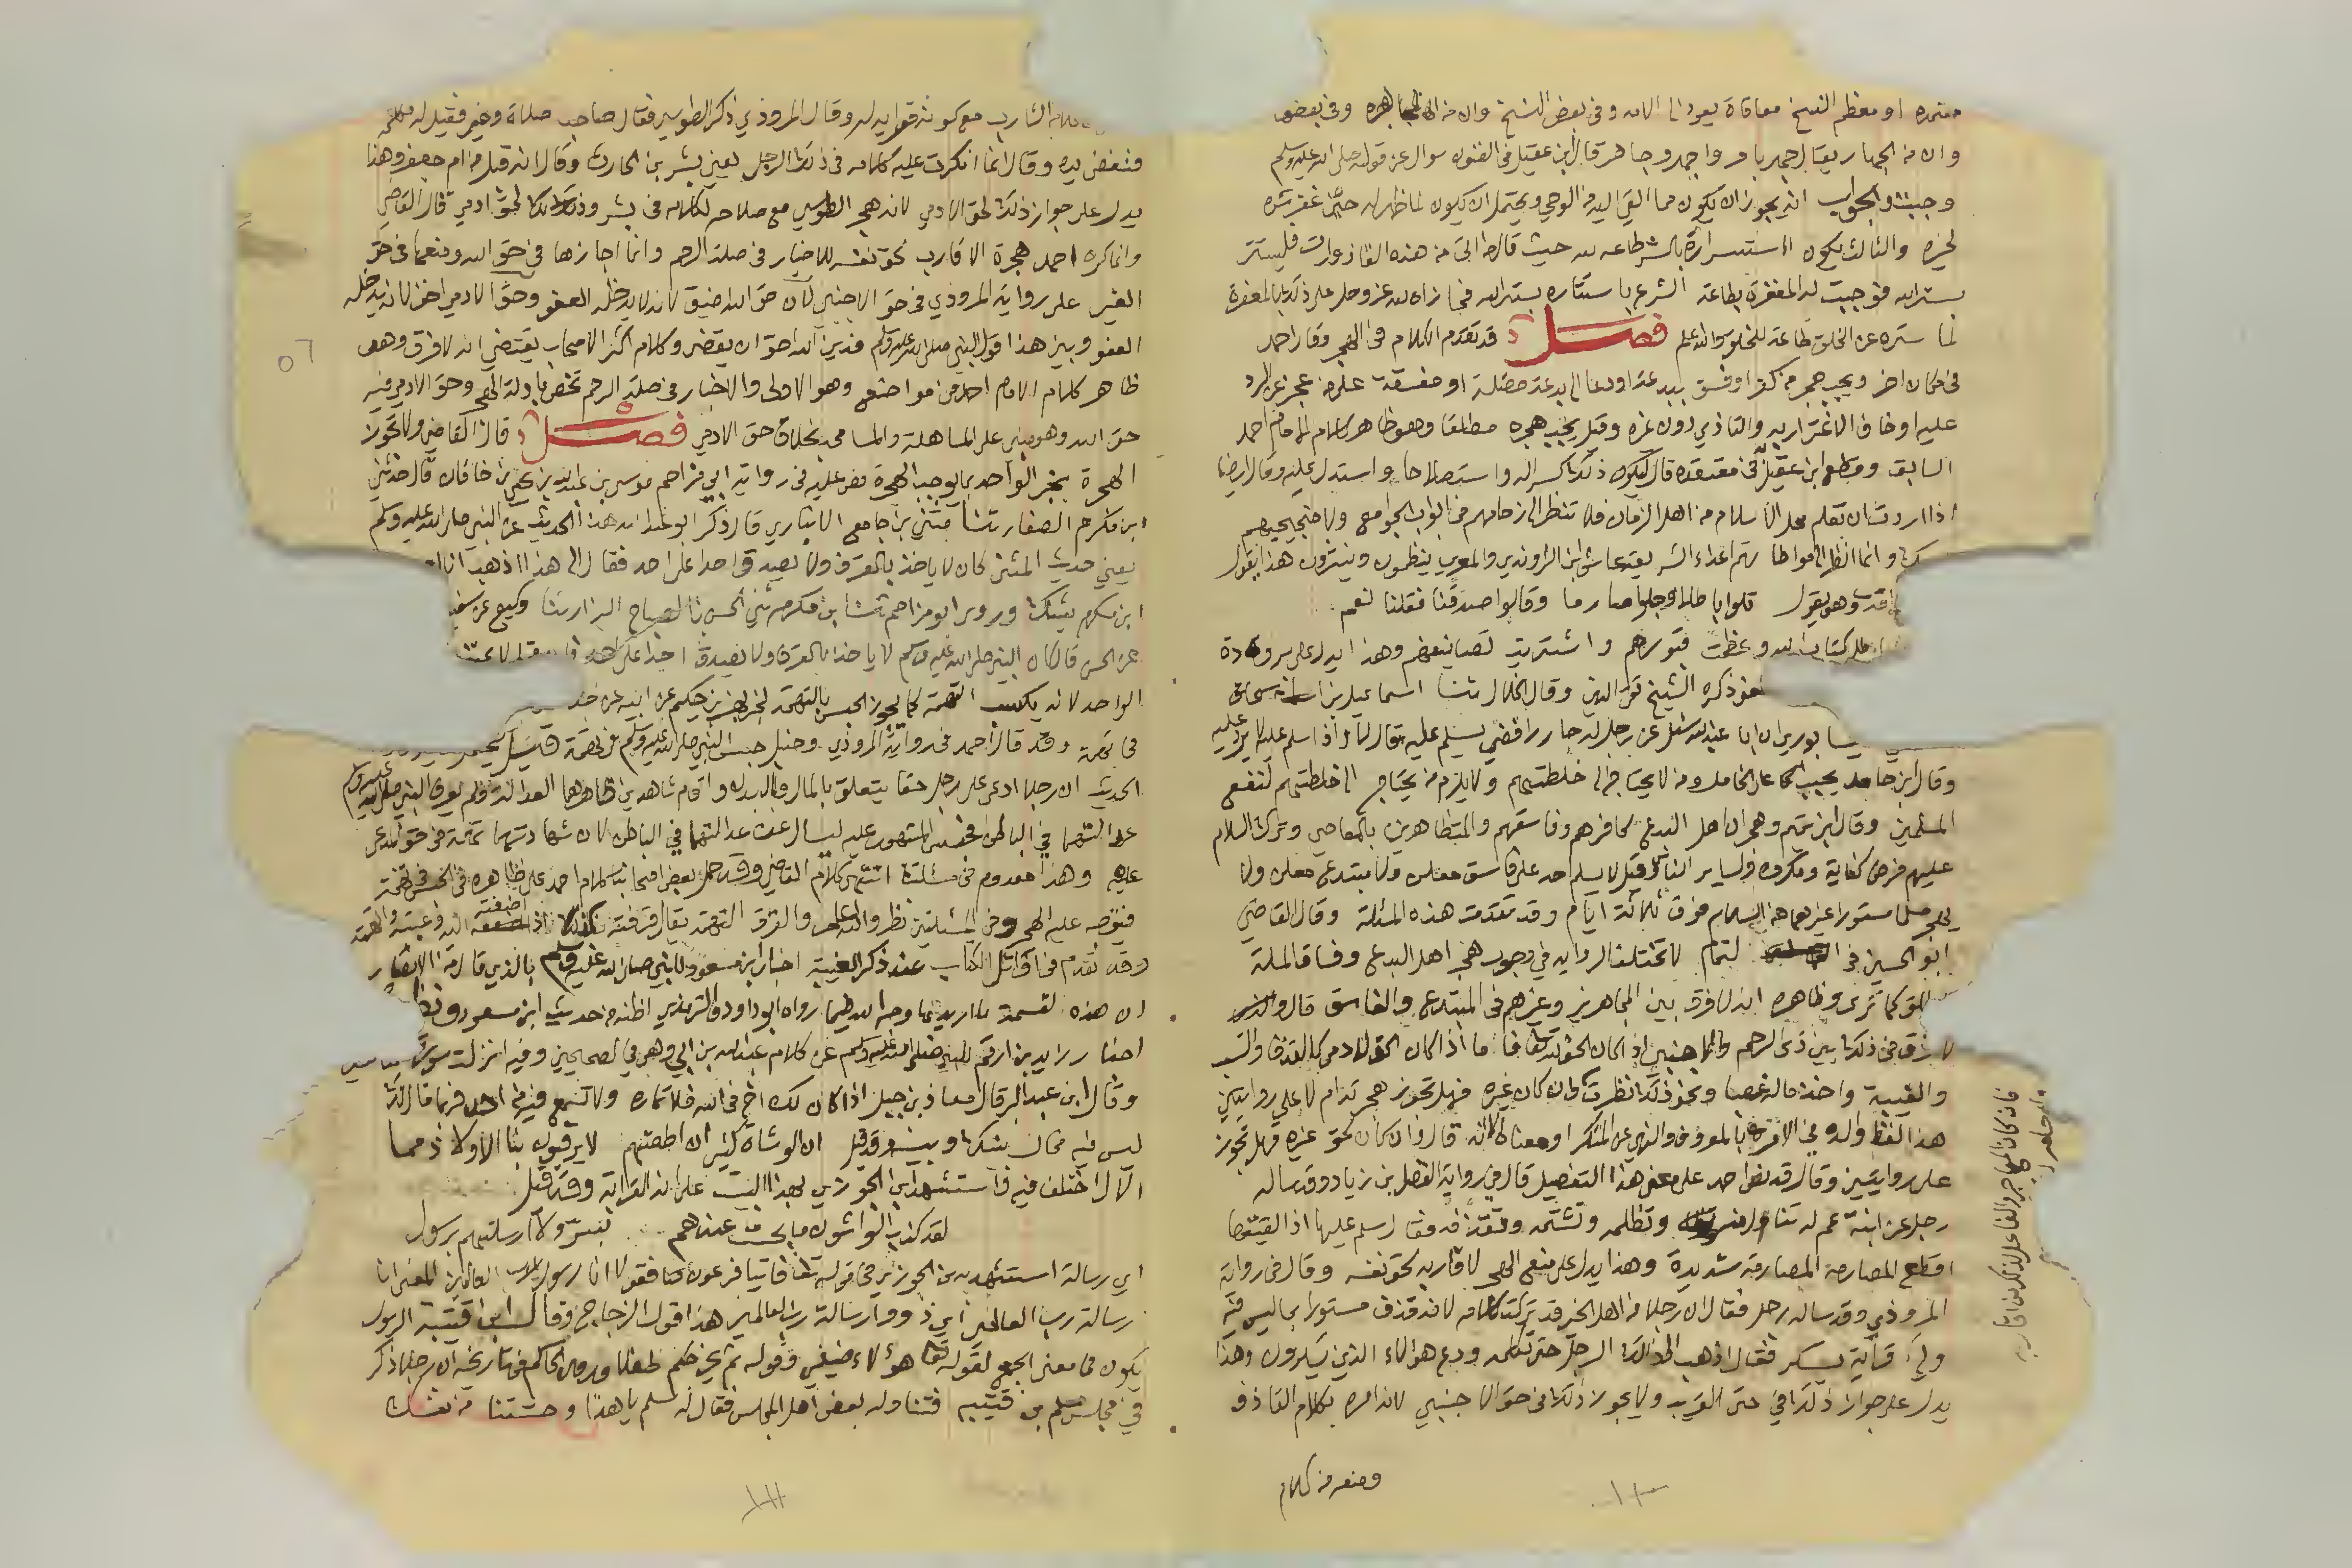 معتمده او معظم النسخ معافاة يعود الى الامه وفي بعض النسخ وان من المجاهرة وفي بعضها
وان من الجهار يقال جهر بامره واجهر وجاهر قال ابن عقيل في الفنون سؤال عن قوله صلى الله عليه وسلم
وجبت والجواب انه يجوز ان يكون مما القي اليه من الوحي ويحتمل ان يكون لما ظهر له حين غفر بشره
لخيره والثالث يكون الاستسرار بالشر طاعة لله حيث قال من اتى من هذه القاذورات فليستتر
بستر الله فوجبت له المغفرة بطاعة الشرع باستتاره بستر الله فجازاه الله عز وجل على ذلك بالمغفرة
لما ستره عن الخلق طاعة للخلق والله اعلم فصل قد تقدم الكلام في الهجر وقال احمد
في مكان اخر ويجب هجر من كفر او فسق ببدعة او دعا الى بدعة مضلة او مفسقة على من عجز عن الرد
عليه او خاف الاغترار به والتاذي دون غيره وقيل يجب هجره مطلقا وهو ظاهر كلام الامام احمد
السابق وقطع ابن عقيل به في معتقده قال ليكون ذلك كسرا له واستصلاحا واستدل عليه وقال ايضا
اذا اردت ان تعلم محل الاسلام من اهل الزمان فلا تنظر الى زحامهم في ابواب الجوامع ولا ضجيجهم
وانما انظر الى مواطاتهم اعداء الشريعة عاش ابن الراوندي والمعري ينظمون وينثرون هذا يقول
وهو يقول تلوا باطلا وجلوا صارما وقالوا صدقنا فقلنا نعم
كتاب الله وعظمت قبورهم واشتريت تصانيفهم وهذا يدل على برودة
ذكره الشيخ تقي الدين وقال الخلال ثنا اسماعيل بن اسحاق
ان ابا عبد الله سئل عن رجل له جار رافضي يسلم عليه قال لا واذا سلم عليه لا يرد عليه
وقال ابن حامد يجب على الخامل ومن لا يحتاج الى خلطتهم ولا يلزم من يحتاج الى خلطتهم لنفع
المسلمين وقال ابن تميم وهجران اهل البدع كافرهم وفاسقهم والمتظاهرين بالمعاصي وترك السلام
عليهم فرض كفاية ومكروه لساير الناس وقيل لا يسلم احد على فاسق معلن ولا مبتدع معلن ولا
يهجر مسلما مستورا غيرهما من السلام فوق ثلاثة ايام وقد تقدمت هذه المسئلة وقال القاضي
ابو الحسين في التمام لا تختلف الرواية في وجوب هجر اهل البدع وفساق الملة
كما ترى وظاهره انه لا فرق بين المجاهر وغيره في المبتدع والفاسق قال ولا
فرق في ذلك بين ذي الرحم والاجنبي اذا كان الحق لله تعالى فاما اذا كان الحق لادمي كالقذف والسب
والغيبة واخذ ماله غصبا ونحو ذلك نظرت فان كان غيره فهل تجوز هجرته ام لا على روايتين
هذا لفظ والده في الامر بالمعروف والنهي عن المنكر او معناه الا انه قال وان كان لحق غيره فهل تجوز
على روايتين وقال قد نص احمد على معنى هذا التفصيل قال في رواية الفضل بن زياد وقد ساله
رجل عن ابنة عم له تنال منه وتظلمه وتشتمه وتقذفه فقال سلم عليها اذا لقيتها
اقطع المصارمة المصارمة شديدة وهذا يدل على منع الهجر لاقاربه لحق نفسه وقال في رواية
المروذي وقد ساله رجل فقال ان رجلا من اهل الخير قد تركت كلامه لانه قذف مستورا بما ليس فيه
ولي قرابة يسكر فقال اذهب الى ذلك الرجل حتى تكلمه ودع هؤلاء الذين يسكرون وهذا
يدل على جواز ذلك في حق القريب ولا يجوز ذلك في حق الاجنبي لانه امره بكلام القاذف
ومنعه من كلام
الشارب مع كونه قرابة له وقال المروذي ذكر الطوسي فقال صاحب صلاة وخير فقيل له تكلمه
فنفض يده وقال انما انكرت عليه كلامه في ذلك الرجل يعني بشر بن الحارث وقال انه قبل من ام جعفر وهذا
يدل على جواز ذلك لحق الادمي لانه هجر الطوسي مع صلاحه لكلامه في بشر وذلك لحق ادمي قال القاضي
وانما كره احمد هجرة الاقارب لحق نفسه للاخبار في صلة الرحم وانما اجازها في حق الله ومنعها في حق
الغير على رواية المروذي في حق الاجنبي لان حق الله اضيق لانه لا يدخله العفو وحق الادمي اخف لانه يدخله
العفو وبين هذا قول النبي صلى الله عليه وسلم فدين الله احق ان يقضى وكلام اكثر الاصحاب يقتضي انه لا فرق وهو
ظاهر كلام الامام احمد في مواضع وهو الاولى والاخبار في صلة الرحم تخص بادلة الهجر وحق الادمي فيه
حق الله وهو مبني على المساهلة والمسامحة بخلاف حق الادمي فصل قال القاضي ولا تجوز
الهجرة بخبر الواحد بما يوجب الهجرة نص عليه في رواية ابي مزاحم موسى بن عبيد الله بن يحيى بن خاقان قال حدثني
ابن مكرم الصفار ثنا مثنى بن جامع الانباري قال ذكر ابو عبد الله هذا الحديث عن النبي صلى الله عليه وسلم
يعني حديث المثنى كان لا ياخذ بالقرف ولا يصدق احدا على احد فقال الى هذا اذهب انا او
ابن مكرم يشك وروى ابو مزاحم ثنا ابن مكرم ثني الحسن بن الصباح البزار ثنا وكيع عن سفيان
عن الحسن قال كان النبي صلى الله عليه وسلم لا ياخذ بالقرف ولا يصدق احدا على احد
الواحد لانه يكسب التهمة كما يجوز الحبس بالتهمة لخبر بهز بن حكيم عن ابيه عن جده
في تهمة وقد قال احمد في رواية المروذي وحنبل حبس النبي صلى الله عليه وسلم في تهمة
الحديث ان رجلا ادعى على رجل حقا يتعلق بالمال والبدن واقام شاهدين ظاهرهما العدالة ولم يعرف النبي صلى الله عليه وسلم
عدالتهما في الباطن فحبس المشهود عليه ليسال عن عدالتهما في الباطن لان شهادتهما تهمة في حق المدعى
عليه وهذا معدوم في مسئلتنا انتهى كلام القاضي وقد حمل بعض اصحابنا كلام احمد على ظاهره في الحبس في تهمة
فنص عليه الهجر وفي المسئلتين نظر والله اعلم والقرف التهمة يقال قرفته بكذا اذا اضفته اليه وعبته واتهمته
وقد تقدم في اوائل الكتاب عند ذكر الغيبة اخبار ابن مسعود للنبي صلى الله عليه وسلم بالذي قال من الانصار
ان هذه لقسمة ما اريد بها وجه الله كما رواه ابو داود والترمذي اظنه من حديث ابن مسعود
اخبار زيد بن ارقم للنبي صلى الله عليه وسلم عن كلام عبد الله بن ابي وهو في الصحيحين وفيه انزلت سورة
وقال ابن عبد البر قال معاذ بن جبل اذا كان لك اخ في الله فلا تماره ولا تسمع فيه من احد فربما قال لك
ليس فيه فحال بينك وبينه وقد قيل ان الوشاة كثير ان اطعتهم لا يرقبون بنا الا ولا ذمما
الال اختلف فيه فاستشهد ابن الجوزي بهذا البيت على انه القرابة وقد قيل
لقد كذب الواشون ما بحت عندهم بسر ولا ارسلتهم برسول
اي رسالة استشهد به ابن الجوزي في قوله تعالى فاتيا فرعون فقولا انا رسول رب العالمين المعنى انا
رسالة رب العالمين اي ذوو رسالة رب العالمين هذا قول الزجاج وقال ابن قتيبة الرسول
يكون في معنى الجمع لقوله تعالى هؤلاء ضيفي وقوله ثم نخرجكم طفلا وروى الحاكم في تاريخه ان رجلا ذكر
في مجلس سلم بن قتيبة فتناوله بعض اهل المجلس فقال له سلم يا هذا وحشتنا من نفسك